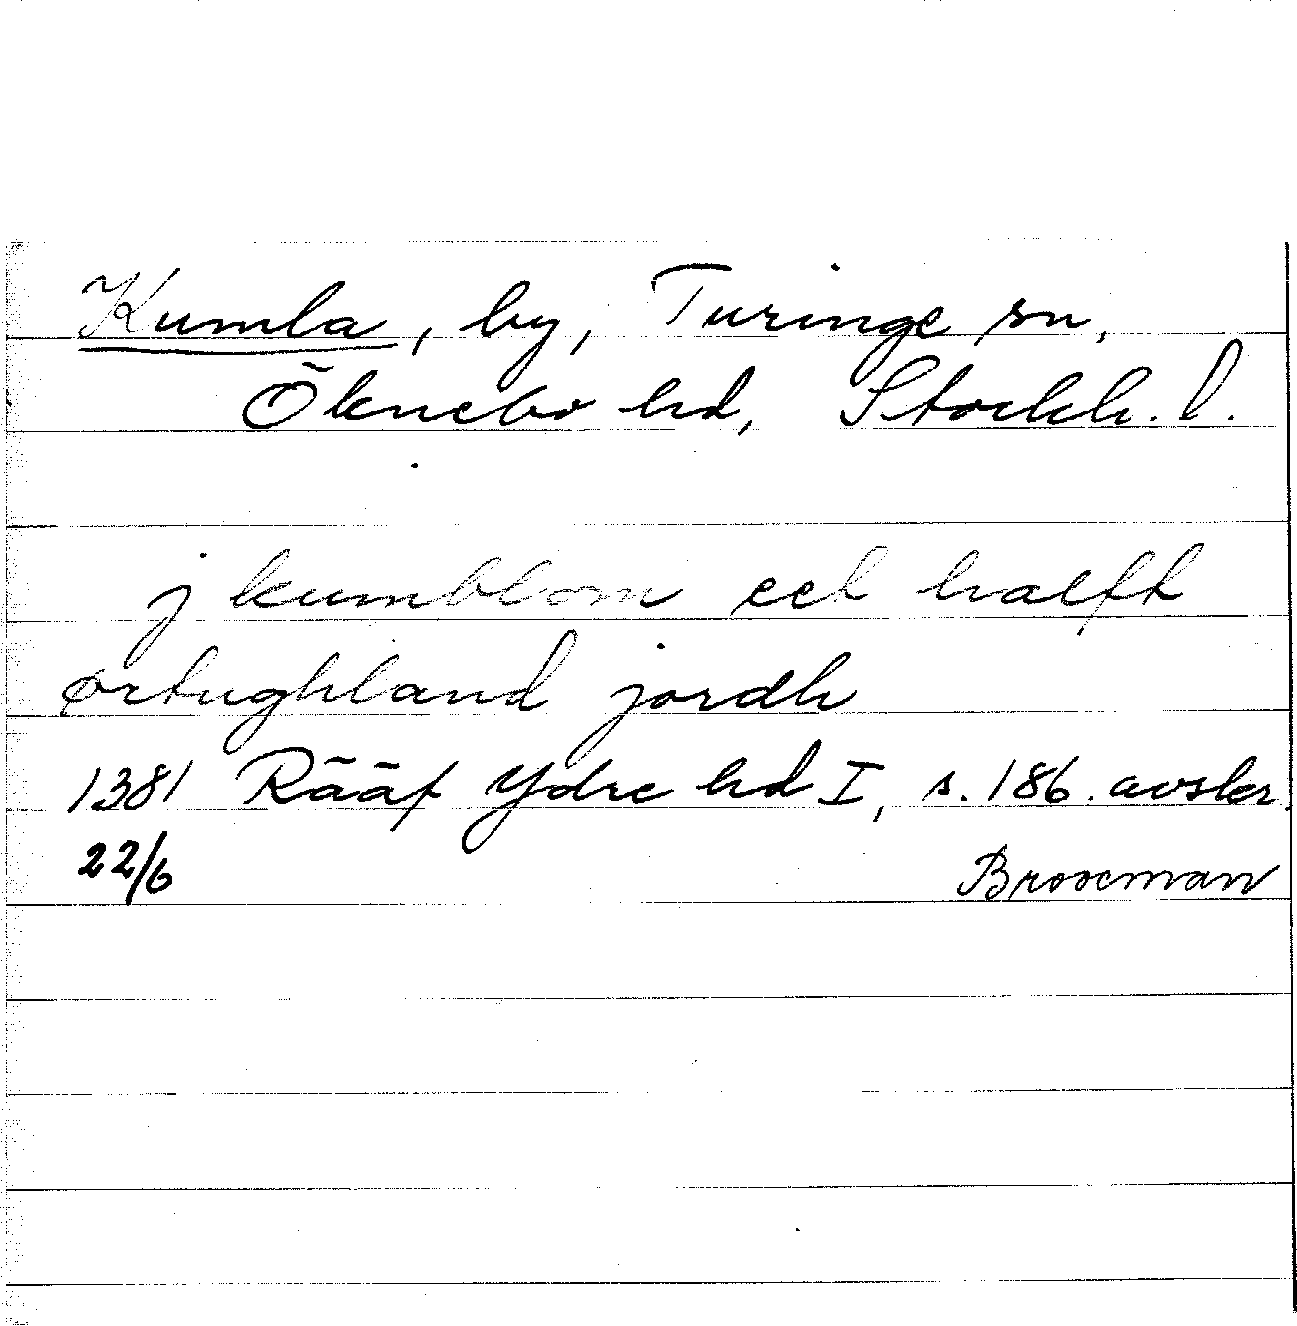 Kumla, by, Turinge sn,
Öknebo hd, Stockh. l.
j kumblom eet halft
ørtughland jordh
1381 Rääf Ydre hd I, s. 186. avskr.
22/6 Broocman